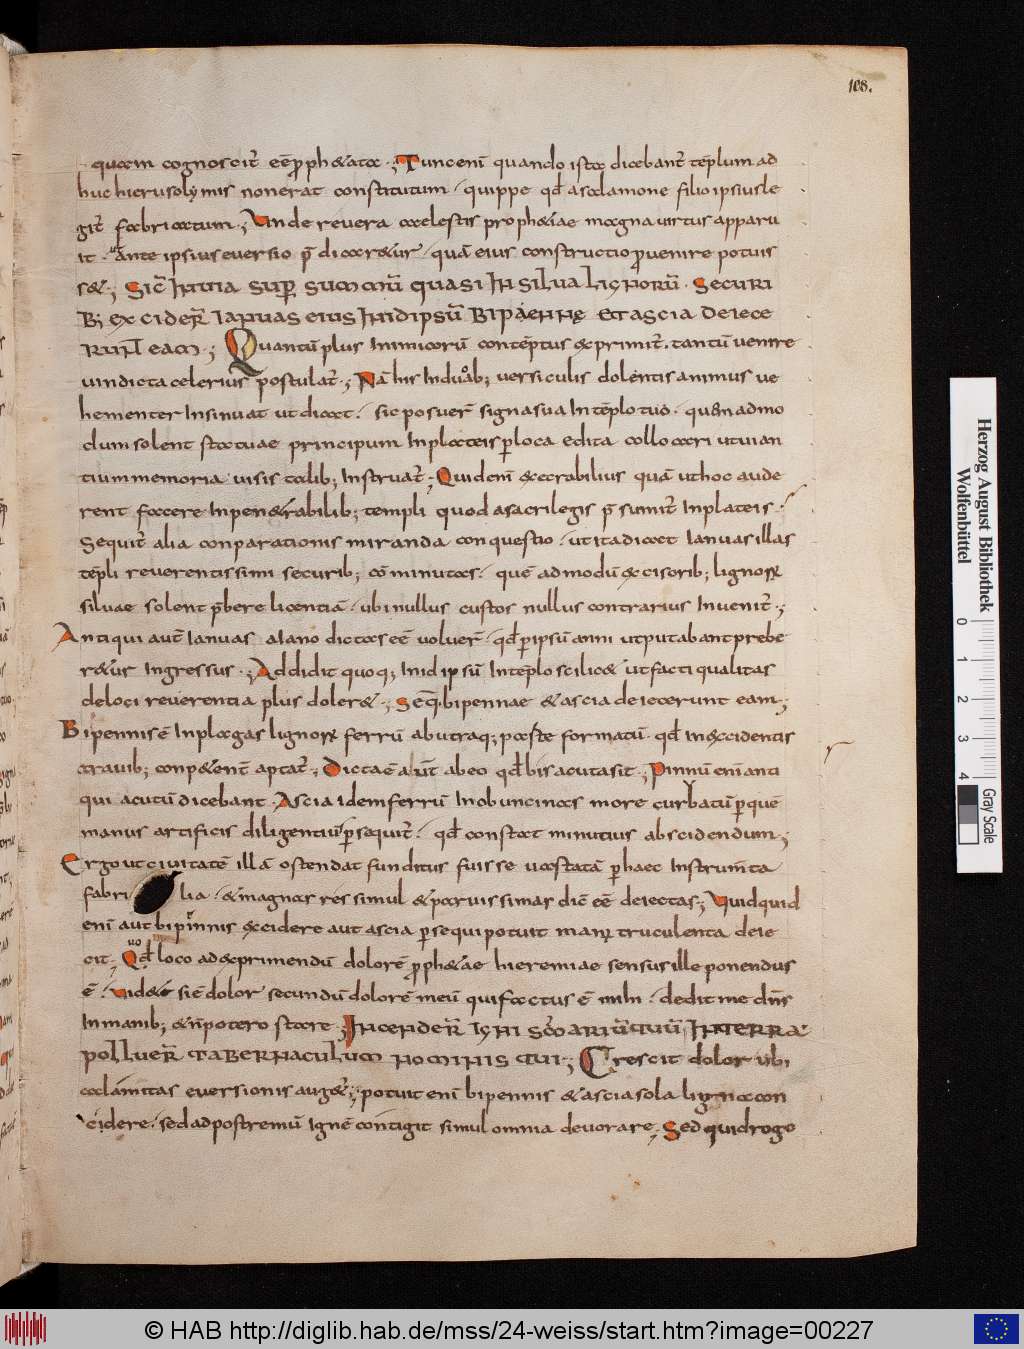 108.
quam cognoscit̄ eē ꝓph&ata ·; Tunc enī quando ista dicebant̄ tēplum ad
huc hierusolymis non erat constitutum · quippe qđ a salamone filio ipsius le
git̄ fabricatum ·; Unde revera caelestis proph&iae magna virtus apparu
it · ante ipsius eversio p̄dicar&ur · quā eius constructio ꝓvenire potuis
s& ·; Sic̄ in via sup̄ summū quasi in silva lignorū · Securi
b; exciderr̄ ianuas eius in idipsū bipenne et ascia deiece
runt̄ eam ·; Quantū plus inimicorū contēptus exprimit̄ · tantū venire
vindicta celerius postulat̄ ·; Nā his in duob; versiculis dolentis animus ve
hementer insinuat ut dicat · sic posuer̄ signa sua in tēplo tuo · quem admo
dum solent statuae principum in plateis ꝑ loca edita collocari ut vian
tium memoria visis talib; instruat̄ ·; Quid enī execrabilius quā ut hoc aude
rent facere in pen&rabilib; templi quod a sacrilegis p̄sumit̄ in plateis ·
Sequit̄ alia conparationis miranda conquestio · ut ita dicat ianuas illas
tēpli reverentissimi securib; cōminutas · quē ad modū excisorib; lignorꝝ
silvae solent p̄bere licentiā · ubi nullus custos nullus contrarius invenit̄ ·;
Antiqui aut̄ ianuas a iano dictas eē voluer̄ · qđ ꝑ ipsū anni ut putabant prebe
r&ur ingressus ·; Addidit quoq; in id ipsū in templo scilic& ut facti qualitas
de loci reverentia plus doler& ·; Seq̄ bipennae & ascia deiecerunt eam ·;
Bipennis ē in plagas lignorꝝ ferrū ab utraq; parte formatū · qđ in excidentis
travib; conp&ent̄ aptat̄ ·; Dicta ē aut̄ ab eo qđ bis acuta sit ·; Pinnū enī anti
qui acutū dicebant · Ascia idem ferrū in obuncinas more curbatū ꝑ quē
manus artificis diligentiū ꝑsequit̄ · qđ constat minutius abscidendum ·;
Ergo ut civitatē illā ostendat funditus fuisse vastatā ꝑ haec instrum̄ta
fabrilia · & magnas res simul & parvissimas dic̄ eē deiectas ·; Quidquid
enī aut bipinnis excidere aut ascia ꝑsequi potuit manꝰ truculenta deie
cit ·; Quo qđ loco ad exprimendū dolorē ꝓph&iae hieremiae sensus ille ponendus
ē · Vid& si ē dolor secundū dolorē meū qui factus ē mihi · dedit me dn̄s
in manib; & n̄ potero stare ·; Incender̄ igni sc̄mariū tuū in terra
polluer̄ tabernaculum nominis tui ·; Crescit dolor ubi
calamitas eversionis aug&̄ ·; potuit enī bipennis & ascia sola ligna con
cidere · sed ad postremū ignē contigit simul omnia devorare ·; Sed qui drogo
Herzog August Bibliothek
Wolfenbüttel
0 1 2 3 4
Gray Scale
© HAB http://diglib.hab.de/mss/24-weiss/start.htm?image=00227